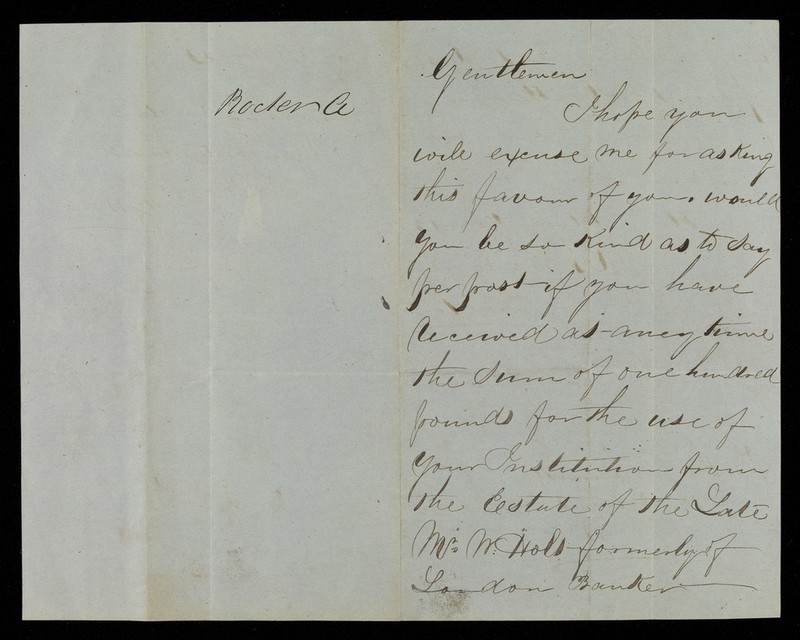 Gentlemen
I hope you
will excuse me for asking
this favour of you. would
you be so kind as to say
per post if you have
received at any time
the sum of one hundred
pounds for the use of
your Institution from
the Estate of the Late
Mr. W. Holt formerly of
London Banker